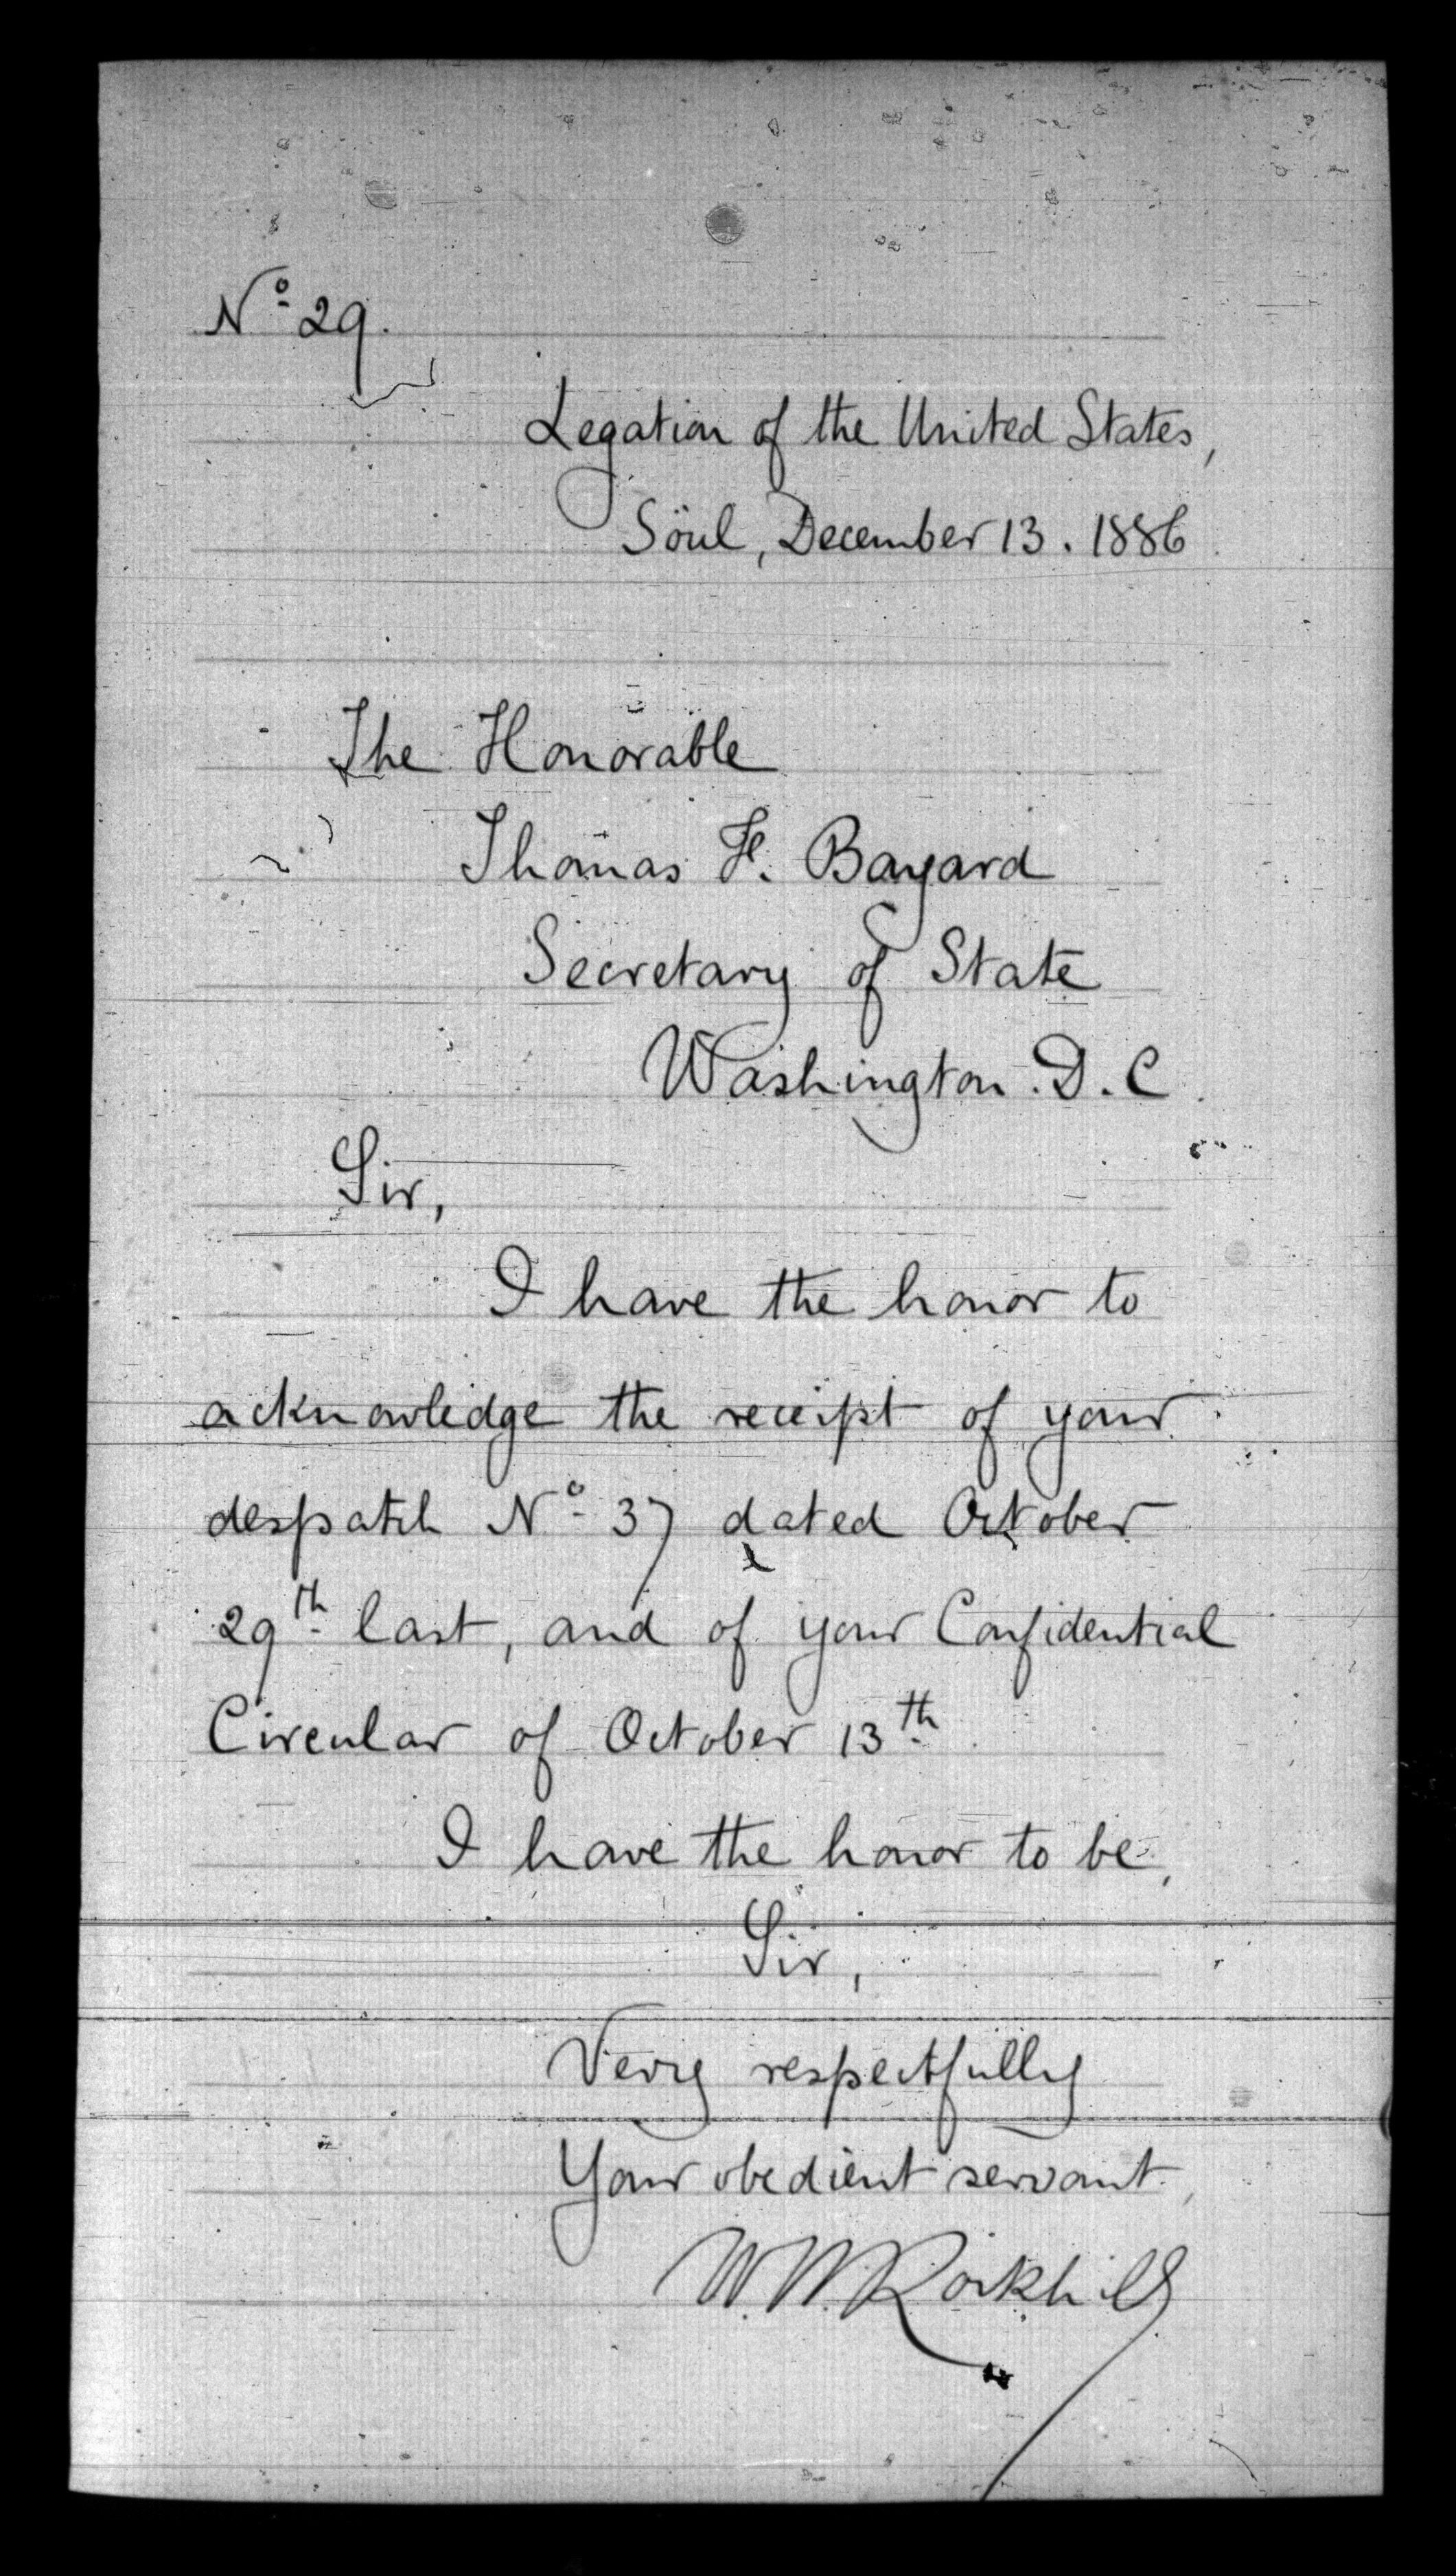 Nº 29.
Legation of the United States,
Söul, December 13. 1886.
The Honorable
Thomas F. Bayard
Secretary of State
Washington. D. C.
Sir,
I have the honor to
acknowledge the receipt of your
despatch Nº 37 dated October
29th last, and of your Confidential
Circular of October 13th.
I have the honor to be,
Sir,
Very respectfully
Your obedient servant,
W. W. Rockhill